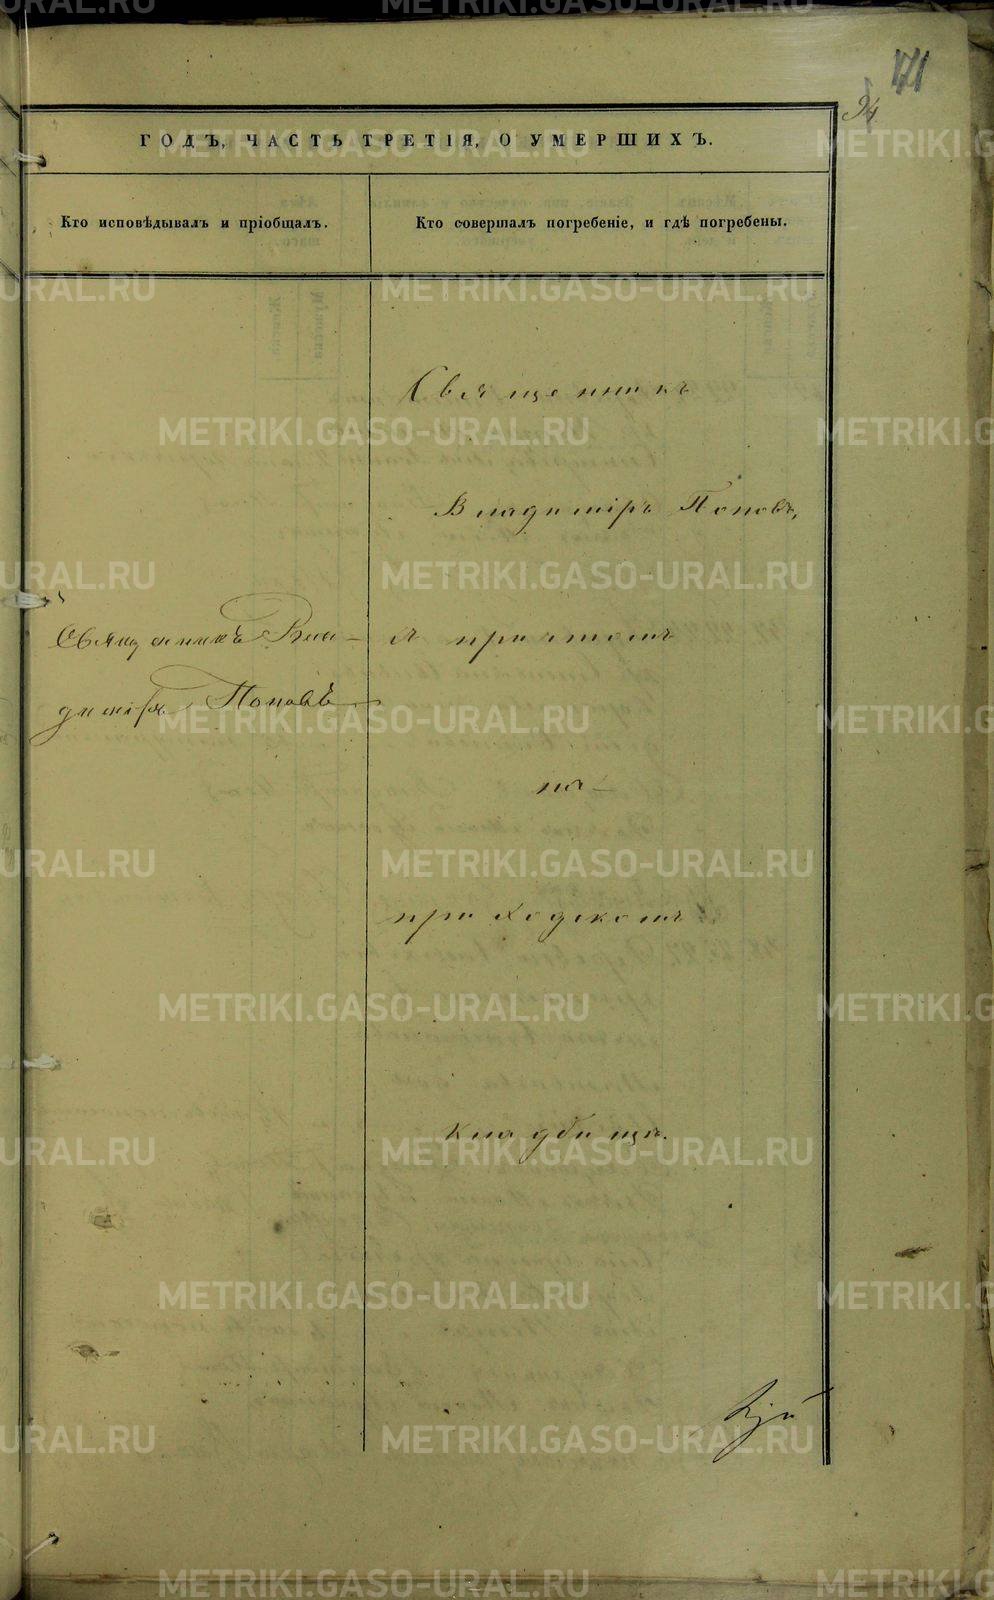 171
94
ГОДЪ, ЧАСТЬ ТРЕТІЯ, О УМЕРШИХЪ.
Кто исповѣдывалъ и пріобщалъ.
Кто совершалъ погребеніе, и гдѣ погребены.
Священникъ
Владиміръ Поповъ,
Священникъ Вла-
диміръ Поповъ
съ причтомъ
на
приходскомъ
кладбищѣ.
METRIKI.GASO-URAL.RU